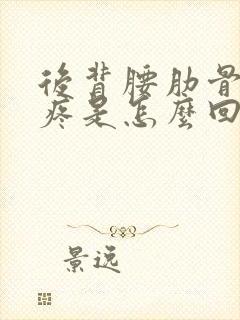 後背腰肋骨
疼是怎麼回
景逸